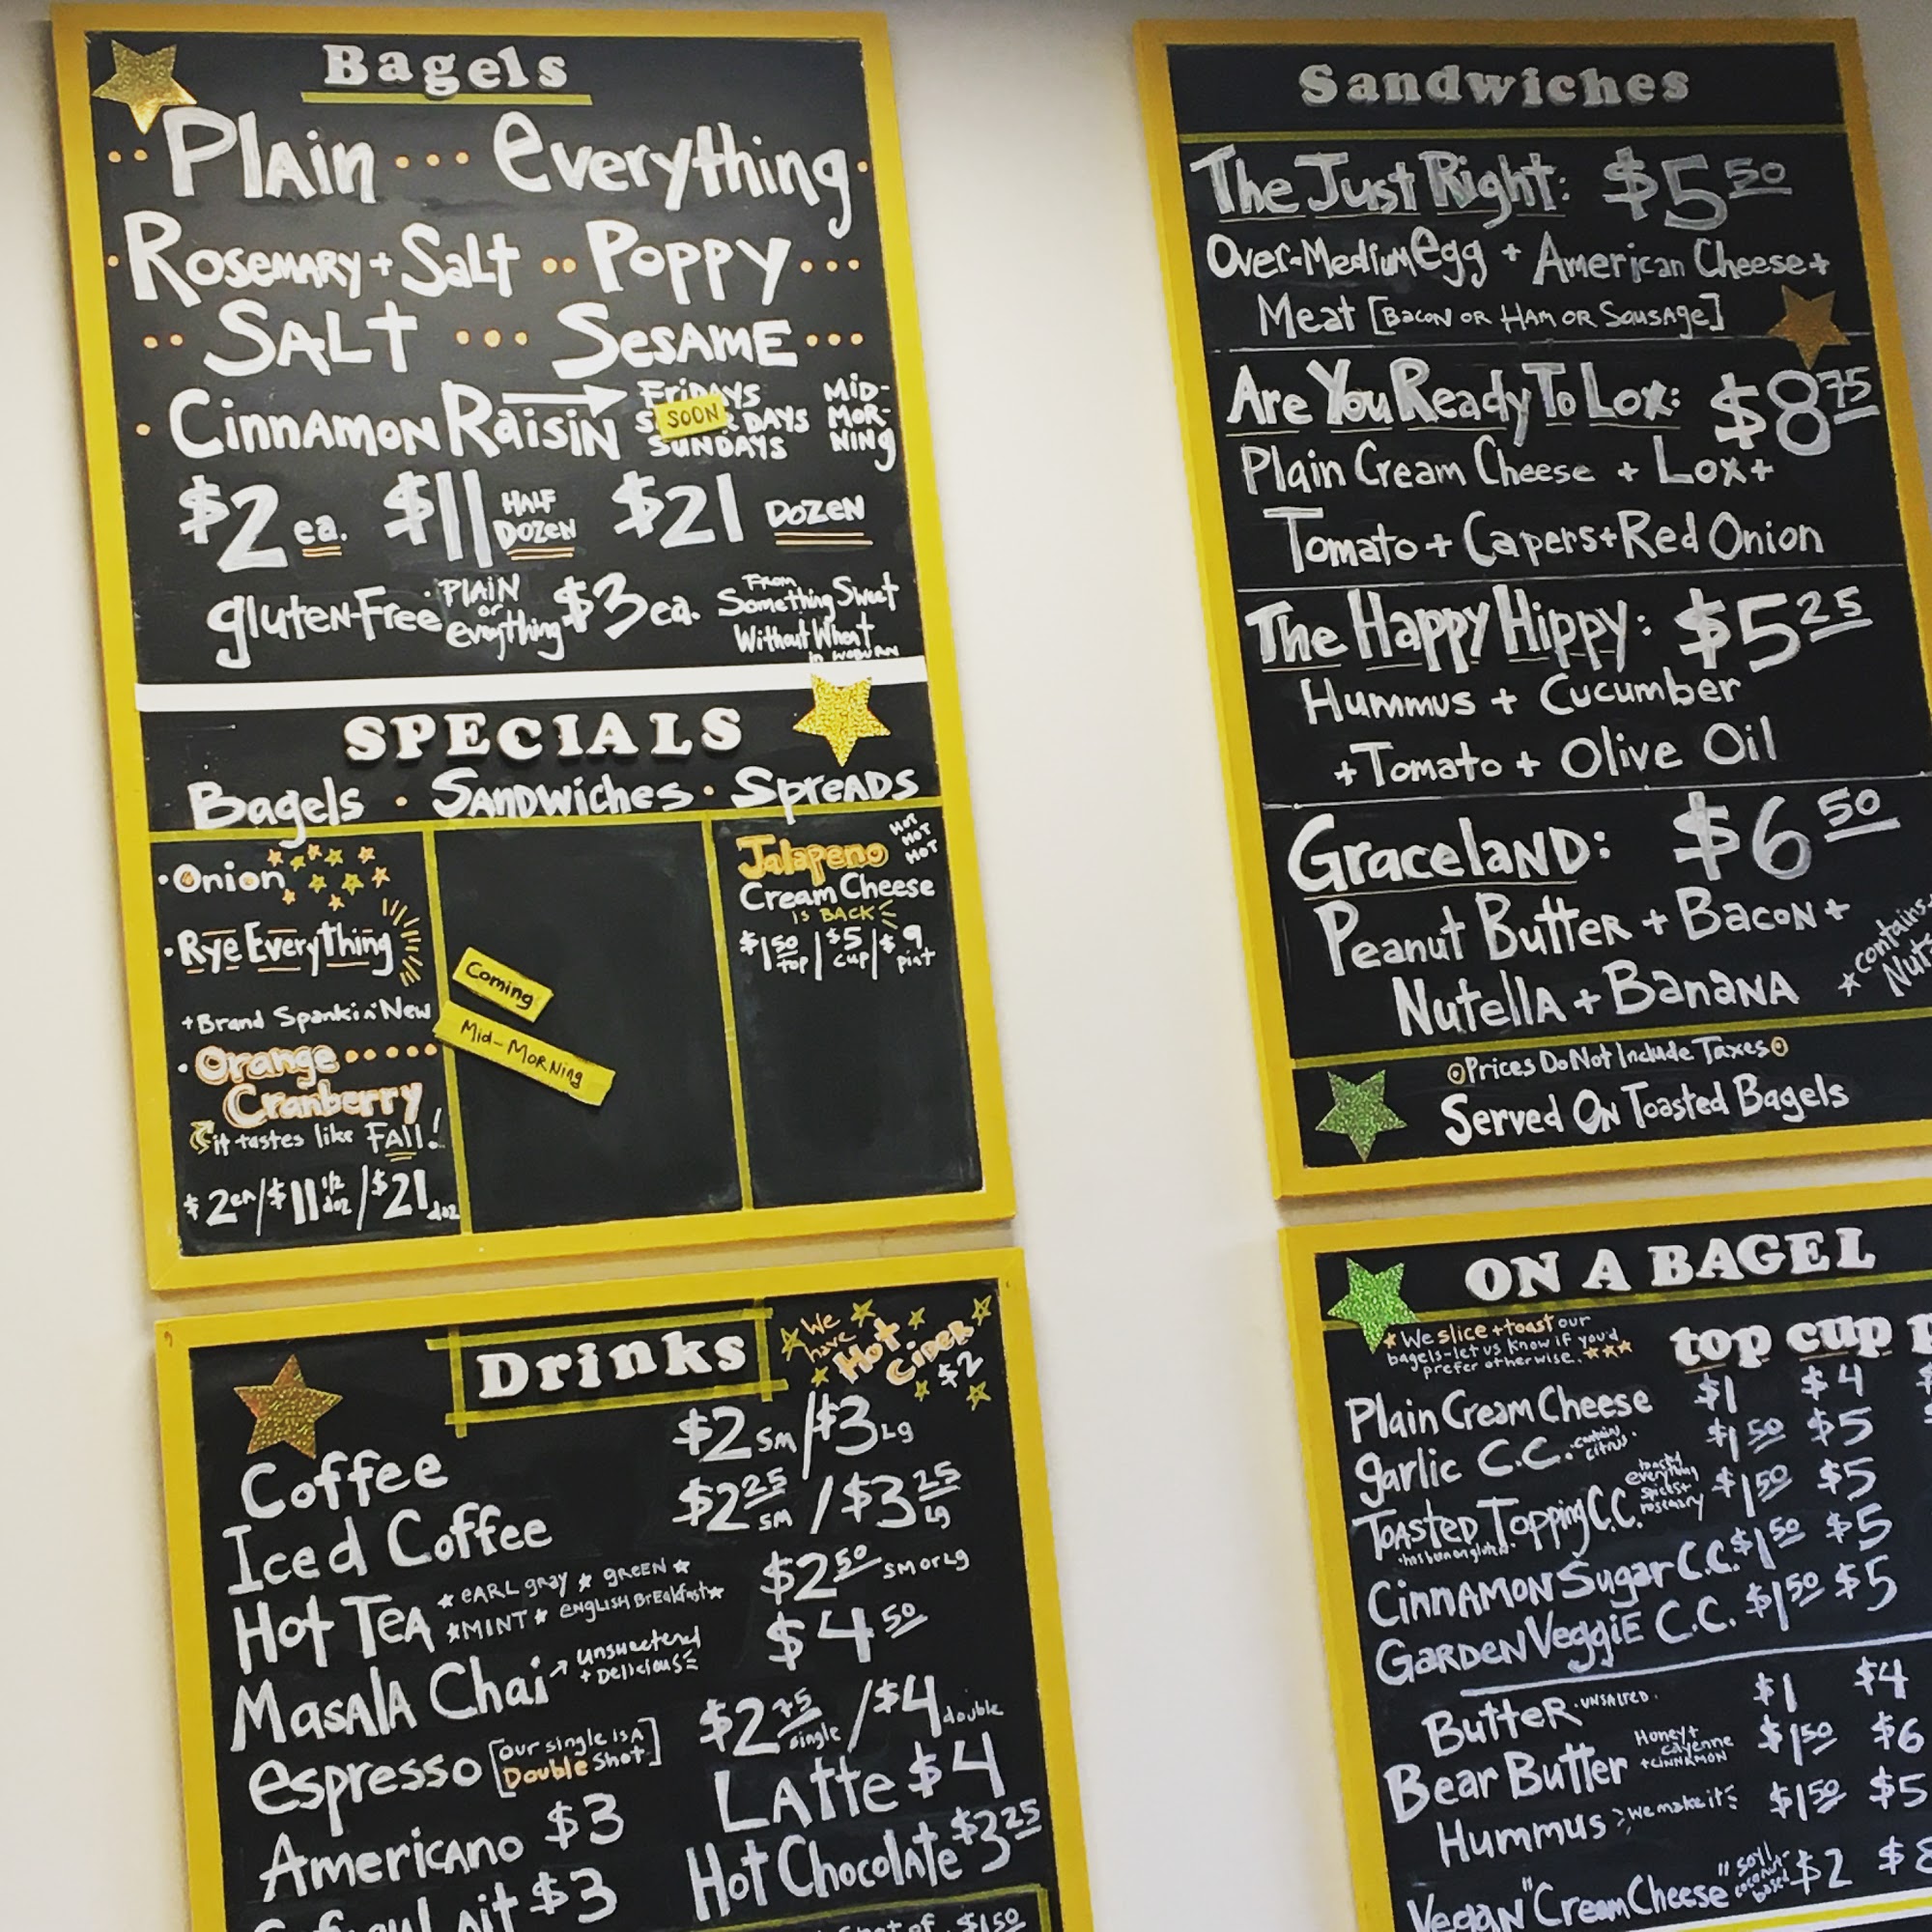 Bagels
Plain everything
Rosemary + Salt Poppy
Salt Sesame
Cinnamon Raisin Fridays SOON Days Sundays Mid-Mor-ning
$2 ea. $11 Half Dozen $21 Dozen
gluten Free Plain or everything $3 ea. From Something Sweet Without Wheat in Woburn
SPECIALS
Bagels · Sandwiches · Spreads
· Onion
· Rye Everything
+ Brand Spankin' New
· Orange
Cranberry
it tastes like FAll!
$2 ea / $11 1/2 doz / $21 doz
Coming
Mid-Morning
HOT HOT HOT
Jalapeno
Cream Cheese
IS BACK
$1 50 top | $5 cup | $9 pint
Drinks
We have Hot Cider $2
Coffee $2 SM / $3 Lg
Iced Coffee $2 25 SM / $3 25 Lg
Hot Tea * Earl gray * green * $2 50 SM or Lg
* Mint * English Breakfast *
Masala Chai unsweetened + Delicious $4 50
espresso [our single is A Double Shot] $2 75 single / $4 double
Americano $3 Latte $4
$3 Hot Chocolate $3 25
$1 50
Sandwiches
The Just Right: $5 50
Over-Medium egg + American Cheese +
Meat [Bacon or Ham or Sausage]
Are You Ready To Lox: $8 75
Plain Cream Cheese + Lox +
Tomato + Capers + Red Onion
The Happy Hippy: $5 25
Hummus + Cucumber
+ Tomato + Olive Oil
Graceland: $6 50
Peanut Butter + Bacon +
Nutella + Banana
* contains
Prices Do Not Include Taxes
Served On Toasted Bagels
ON A BAGEL
* We slice + toast our
bagels - let us know if you'd
prefer otherwise. ***
top cup
Plain Cream Cheese $1 $4
garlic C.C. · contains citrus · $1 50 $5
Toasted Topping C.C. toasted everything spices + rosemary $1 50 $5
Cinnamon Sugar C.C. $1 50 $5
Garden Veggie C.C. $1 50 $5
Butter · unsalted · $1 $4
Bear Butter Honey + Cayenne + Cinnamon $1 50 $6
Hummus we make it $1 50 $5
Vegan "Cream Cheese" $2